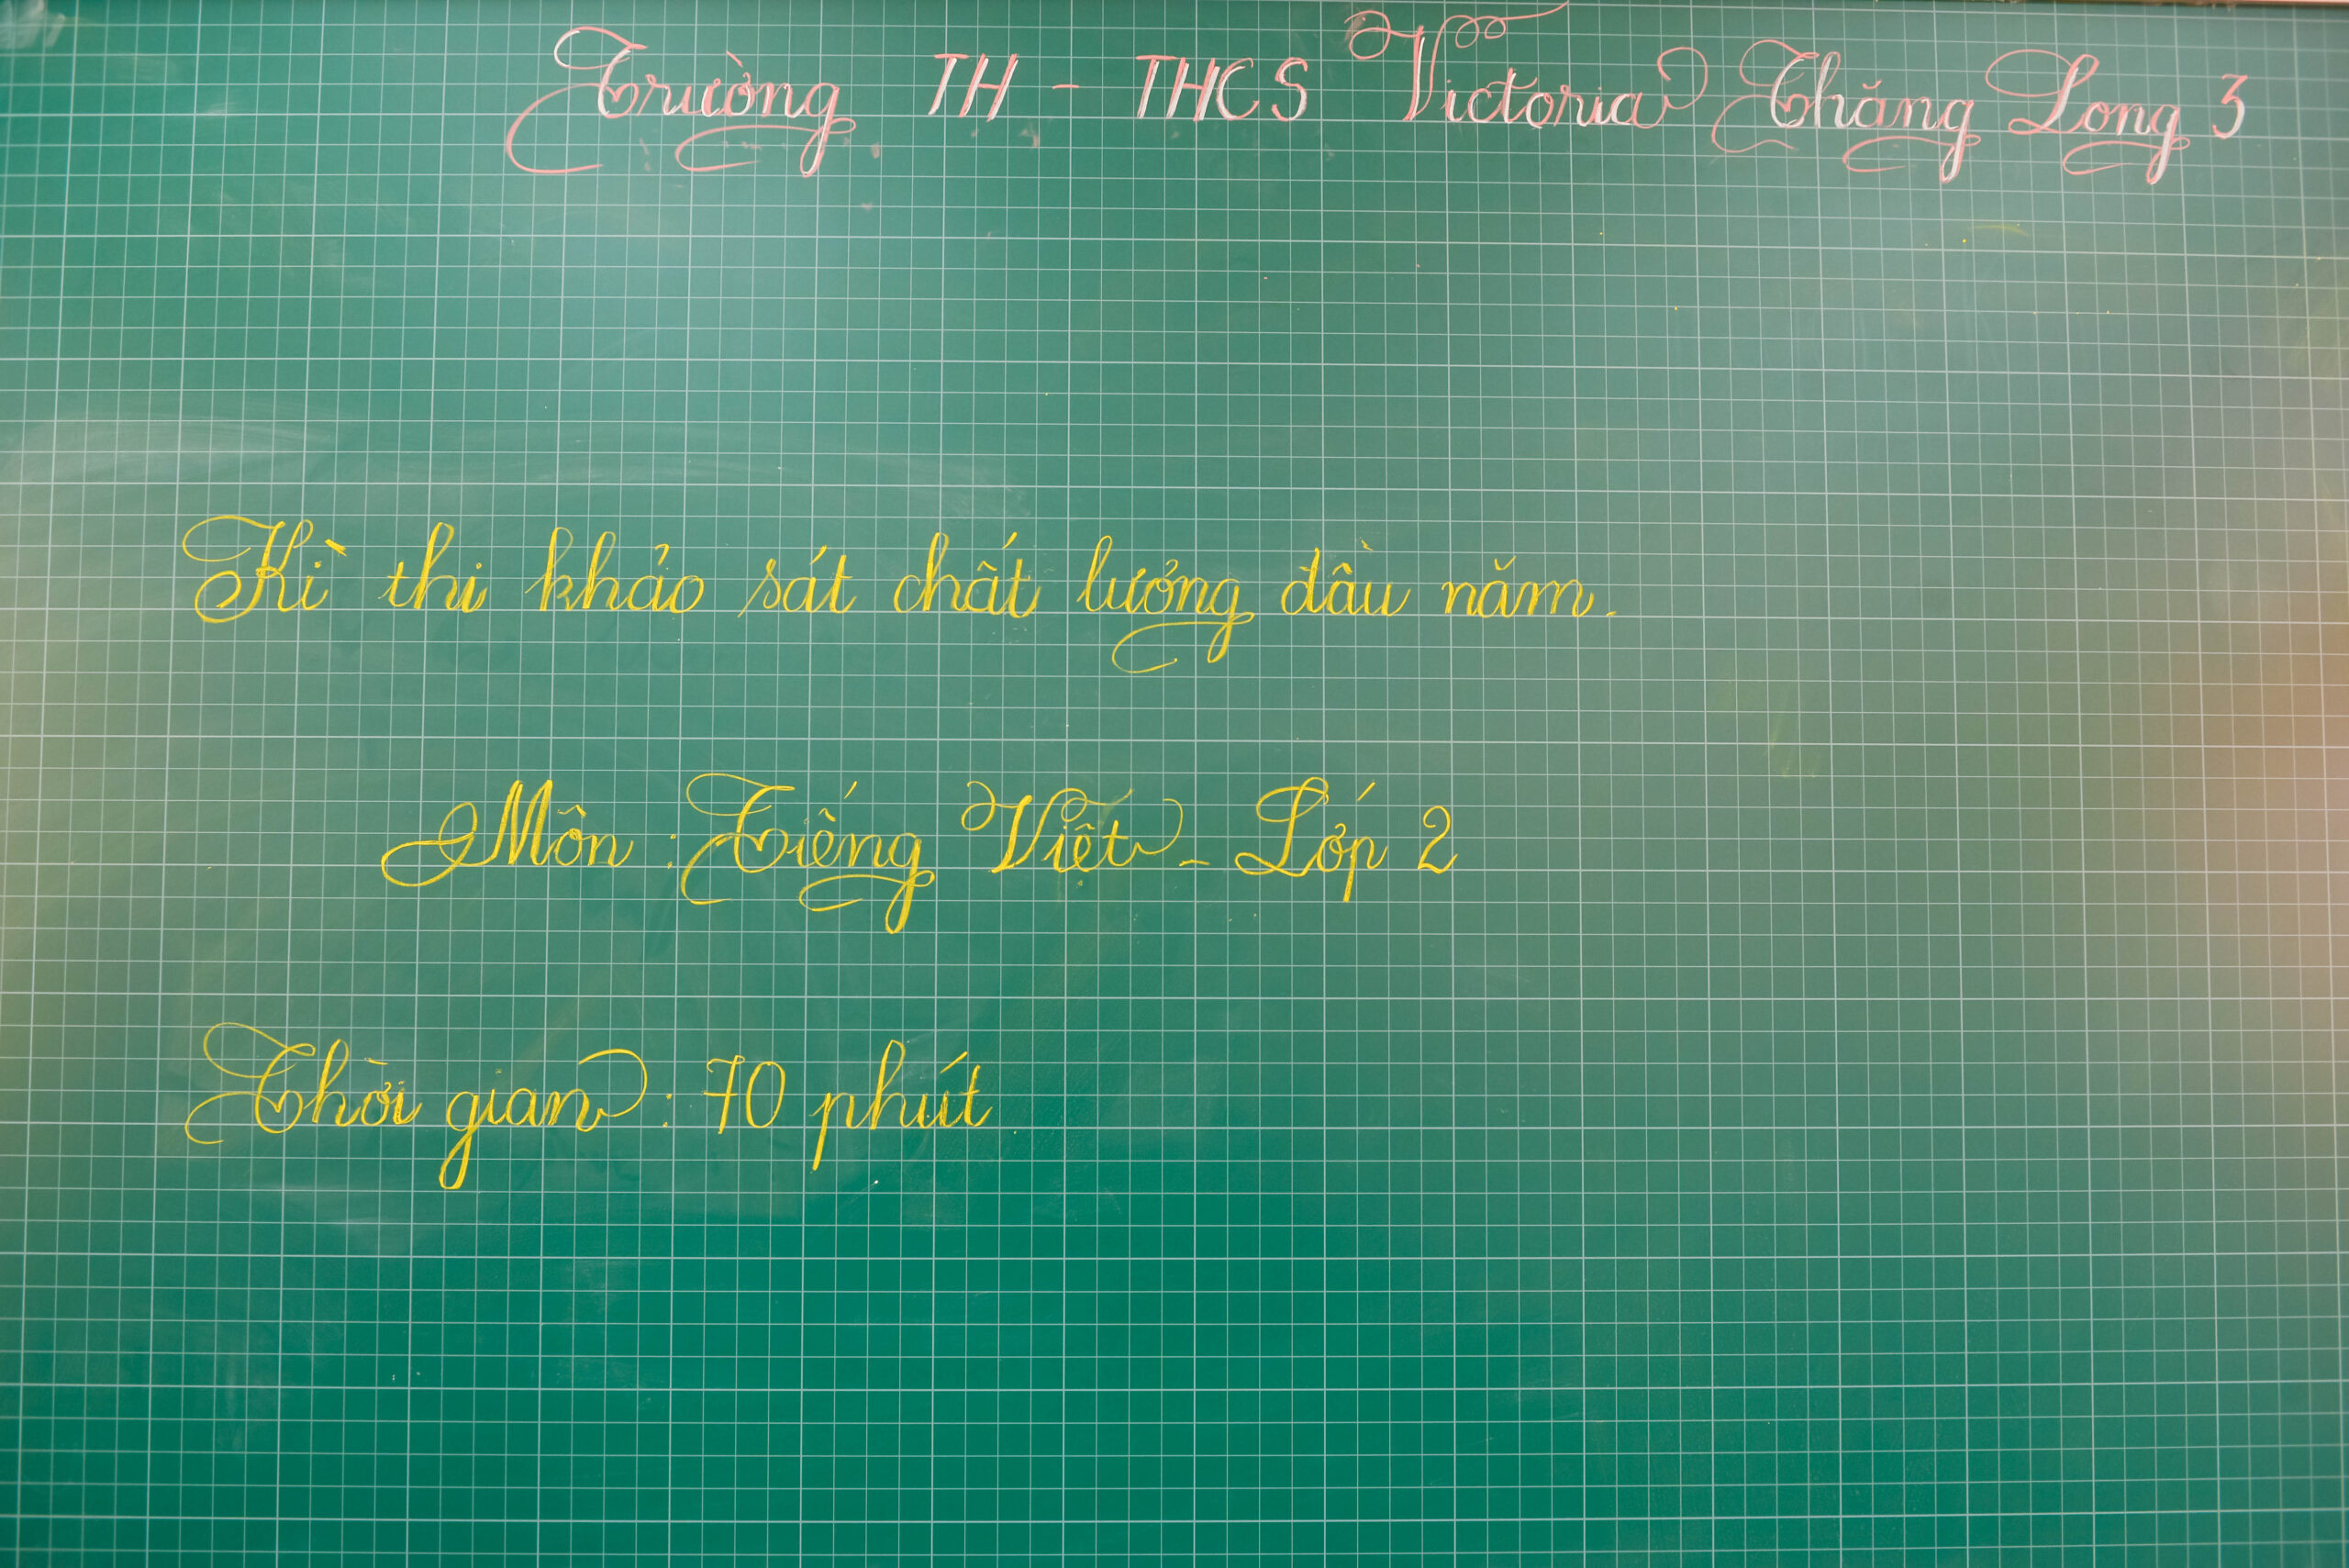 Trường TH - THCS Victoria Thăng Long 3
Kì thi khảo sát chất lượng đầu năm.
Môn : Tiếng Việt - Lớp 2
Thời gian : 70 phút